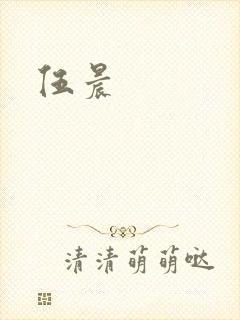 伍晨
清清萌萌哒